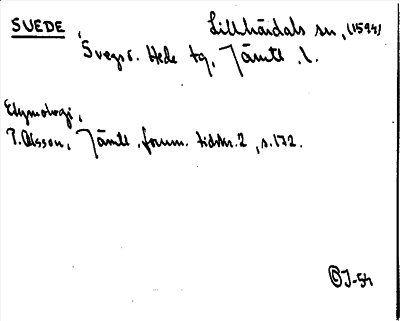 SUEDE Lillhärdals sn, (1594)
Svegs o. Hede tg, Jämtl. l.
Etymologi,
P. Olsson, Jämtl. fornm. tidskr. 2, s. 172.
J-54